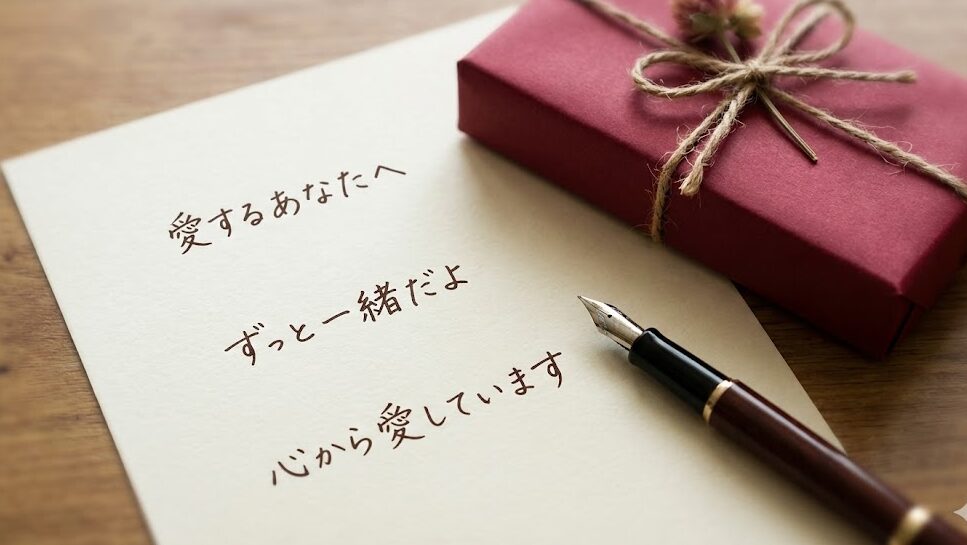 愛するあなたへ
ずっと一緒だよ
心から愛しています